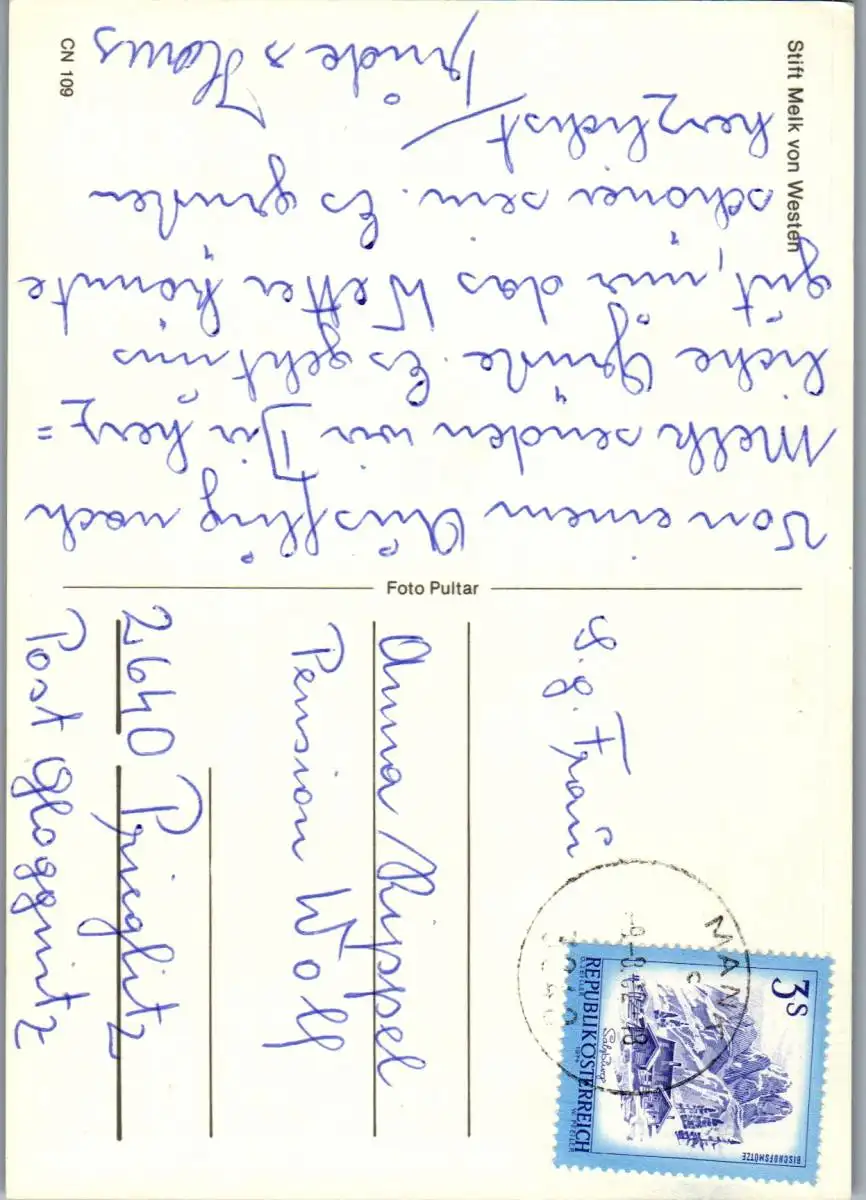 Stift Melk von Westen
CN 109
Von einem Ausflug nach
Melk senden wir Dir herz=
liche Grüße. Es geht uns
gut, nur das Wetter könnte
schöner sein. Es grüßen
herzlichst
Trude + Hans
Foto Pultar
S. g. Frau
Anna Rippel
Pension Wolf
2640 Prieglitz
Post Gloggnitz
MANK
c
3S
BISCHOFSMÜTZE
Salzburg
1974
REPUBLIK ÖSTERREICH